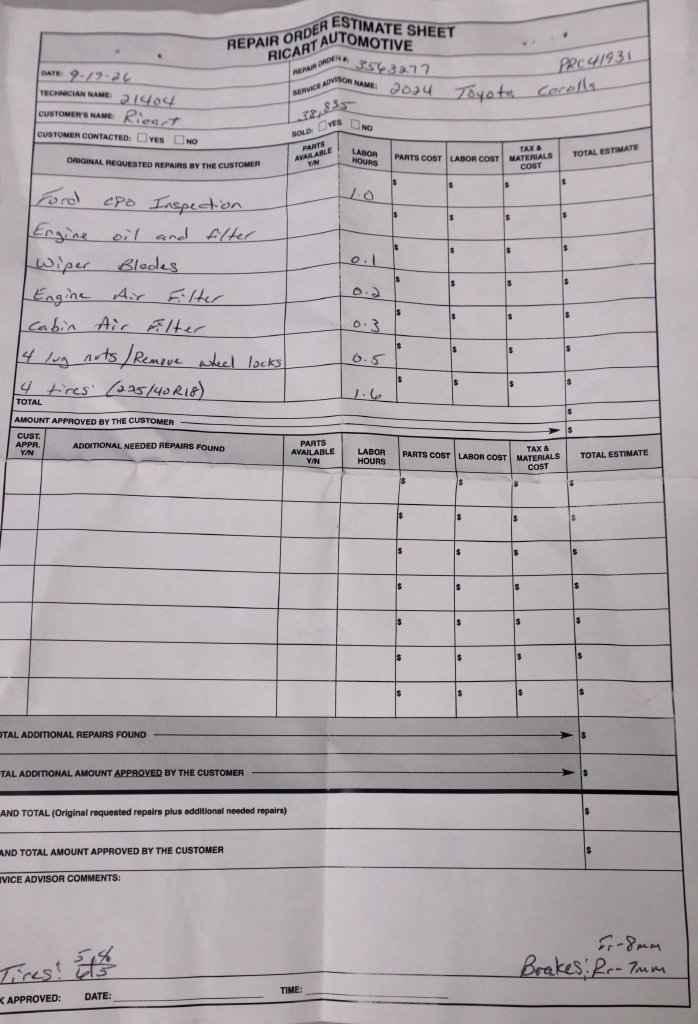 REPAIR ORDER ESTIMATE SHEET
RICART AUTOMOTIVE
DATE: 9-17-26 REPAIR ORDER #: 3563277 PRC41931
TECHNICIAN NAME: 21404 SERVICE ADVISOR NAME: 2024 Toyota Corolla
CUSTOMER'S NAME: Ricart 38,835
CUSTOMER CONTACTED: YES NO SOLD: YES NO
ORIGINAL REQUESTED REPAIRS BY THE CUSTOMER PARTS AVAILABLE Y/N LABOR HOURS PARTS COST LABOR COST TAX & MATERIALS COST TOTAL ESTIMATE
Ford CPO Inspection 1.0 $ $ $ $
Engine oil and filter $ $ $ $
Wiper Blades 0.1 $ $ $ $
Engine Air Filter 0.2 $ $ $ $
Cabin Air Filter 0.3 $ $ $ $
4 lug nuts/Remove wheel locks 0.5 $ $ $ $
4 tires (225/40R18) 1.6 $ $ $ $
TOTAL $
AMOUNT APPROVED BY THE CUSTOMER $
CUST. APPR. Y/N ADDITIONAL NEEDED REPAIRS FOUND PARTS AVAILABLE Y/N LABOR HOURS PARTS COST LABOR COST TAX & MATERIALS COST TOTAL ESTIMATE
$ $ $ $
$ $ $ $
$ $ $ $
$ $ $ $
$ $ $ $
$ $ $ $
$ $ $ $
OTAL ADDITIONAL REPAIRS FOUND $
TAL ADDITIONAL AMOUNT APPROVED BY THE CUSTOMER $
AND TOTAL (Original requested repairs plus additional needed repairs) $
AND TOTAL AMOUNT APPROVED BY THE CUSTOMER $
VICE ADVISOR COMMENTS:
Fr-8mm
Tires: 5/6 Brakes: Rr-7mm
6/5
K APPROVED: DATE: TIME: